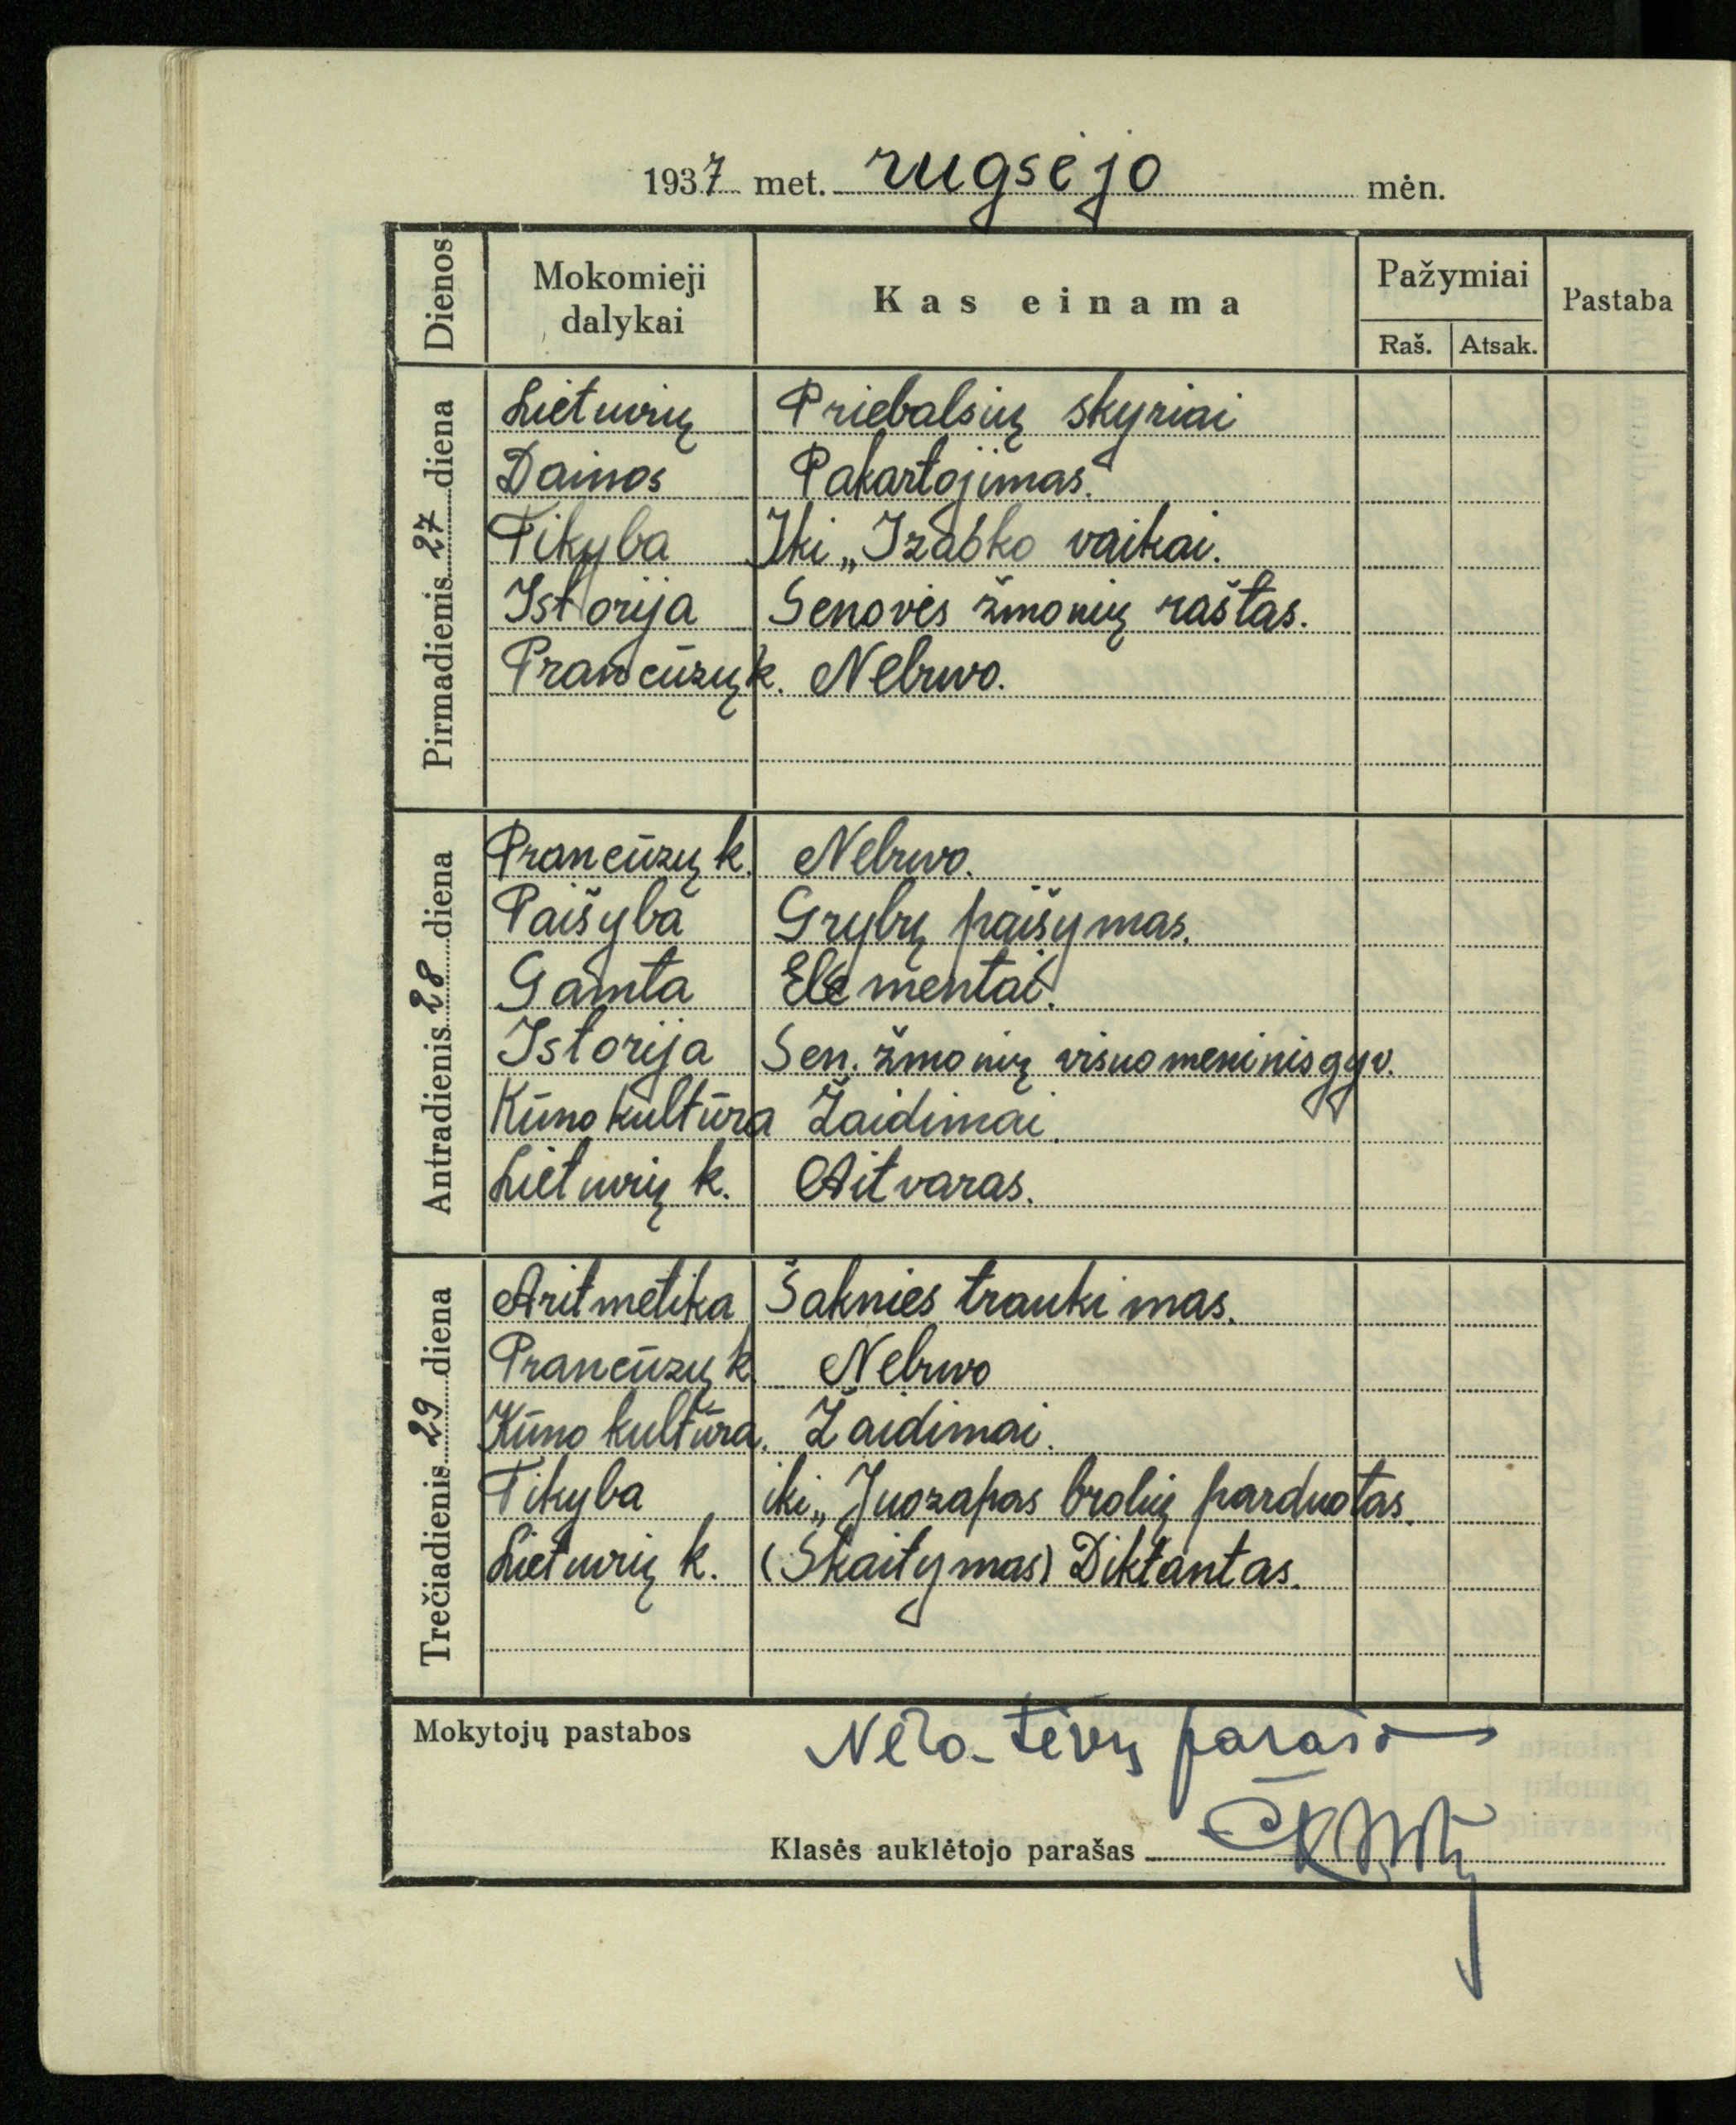 1937 met. rugsėjo mėn.
Dienos Mokomieji dalykai Kas einama Pažymiai Raš. Atsak. Pastaba
Pirmadienis 27 diena
Lietuvių Priebalsių skyriai
Dainos Pakartojimas.
Tikyba Iki „Izaoko vaikai.
Istorija Senovės žmonių raštas.
Prancūzų k. Nebuvo.
Antradienis 28 diena
Prancūzų k. Nebuvo.
Paišyba Grybų paišymas.
Gamta Elementai.
Istorija Sen. žmonių visuomeninis gyv.
Kūno kultūra Žaidimai.
Lietuvių k. Aitvaras.
Trečiadienis 29 diena
Aritmetika Šaknies traukimas.
Prancūzų k. Nebuvo
Kūno kultūra. Žaidimai.
Tikyba iki „Juozapas brolių parduotas.
Lietuvių k. (Skaitymas) Diktantas.
Mokytojų pastabos Nėra tėvų parašo
Klasės auklėtojo parašas